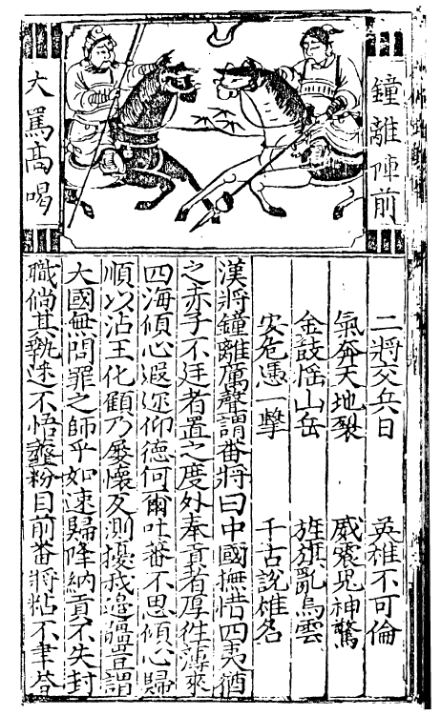 鐘離陣前
大罵高喝
二將交兵日　英雄不可倫
氣奔天地裂　威震鬼神驚
金鼓愮山岳　旌旗亂鳥雲
安危慿一擊　千古說雄名
漢將鐘離厲聲謂畨將曰中國撫惜四夷猶
之赤子不廷者置之度外奉貢者厚徃薄來
四海傾心遐迩仰德何爾吐蕃不思傾心歸
順以沾王化顧乃屡懷反測擾我邉疆豈謂
大國無問罪之師乎如速歸降納貢不失封
職倘其執迷不悟虀粉目前畨將粘不聿答